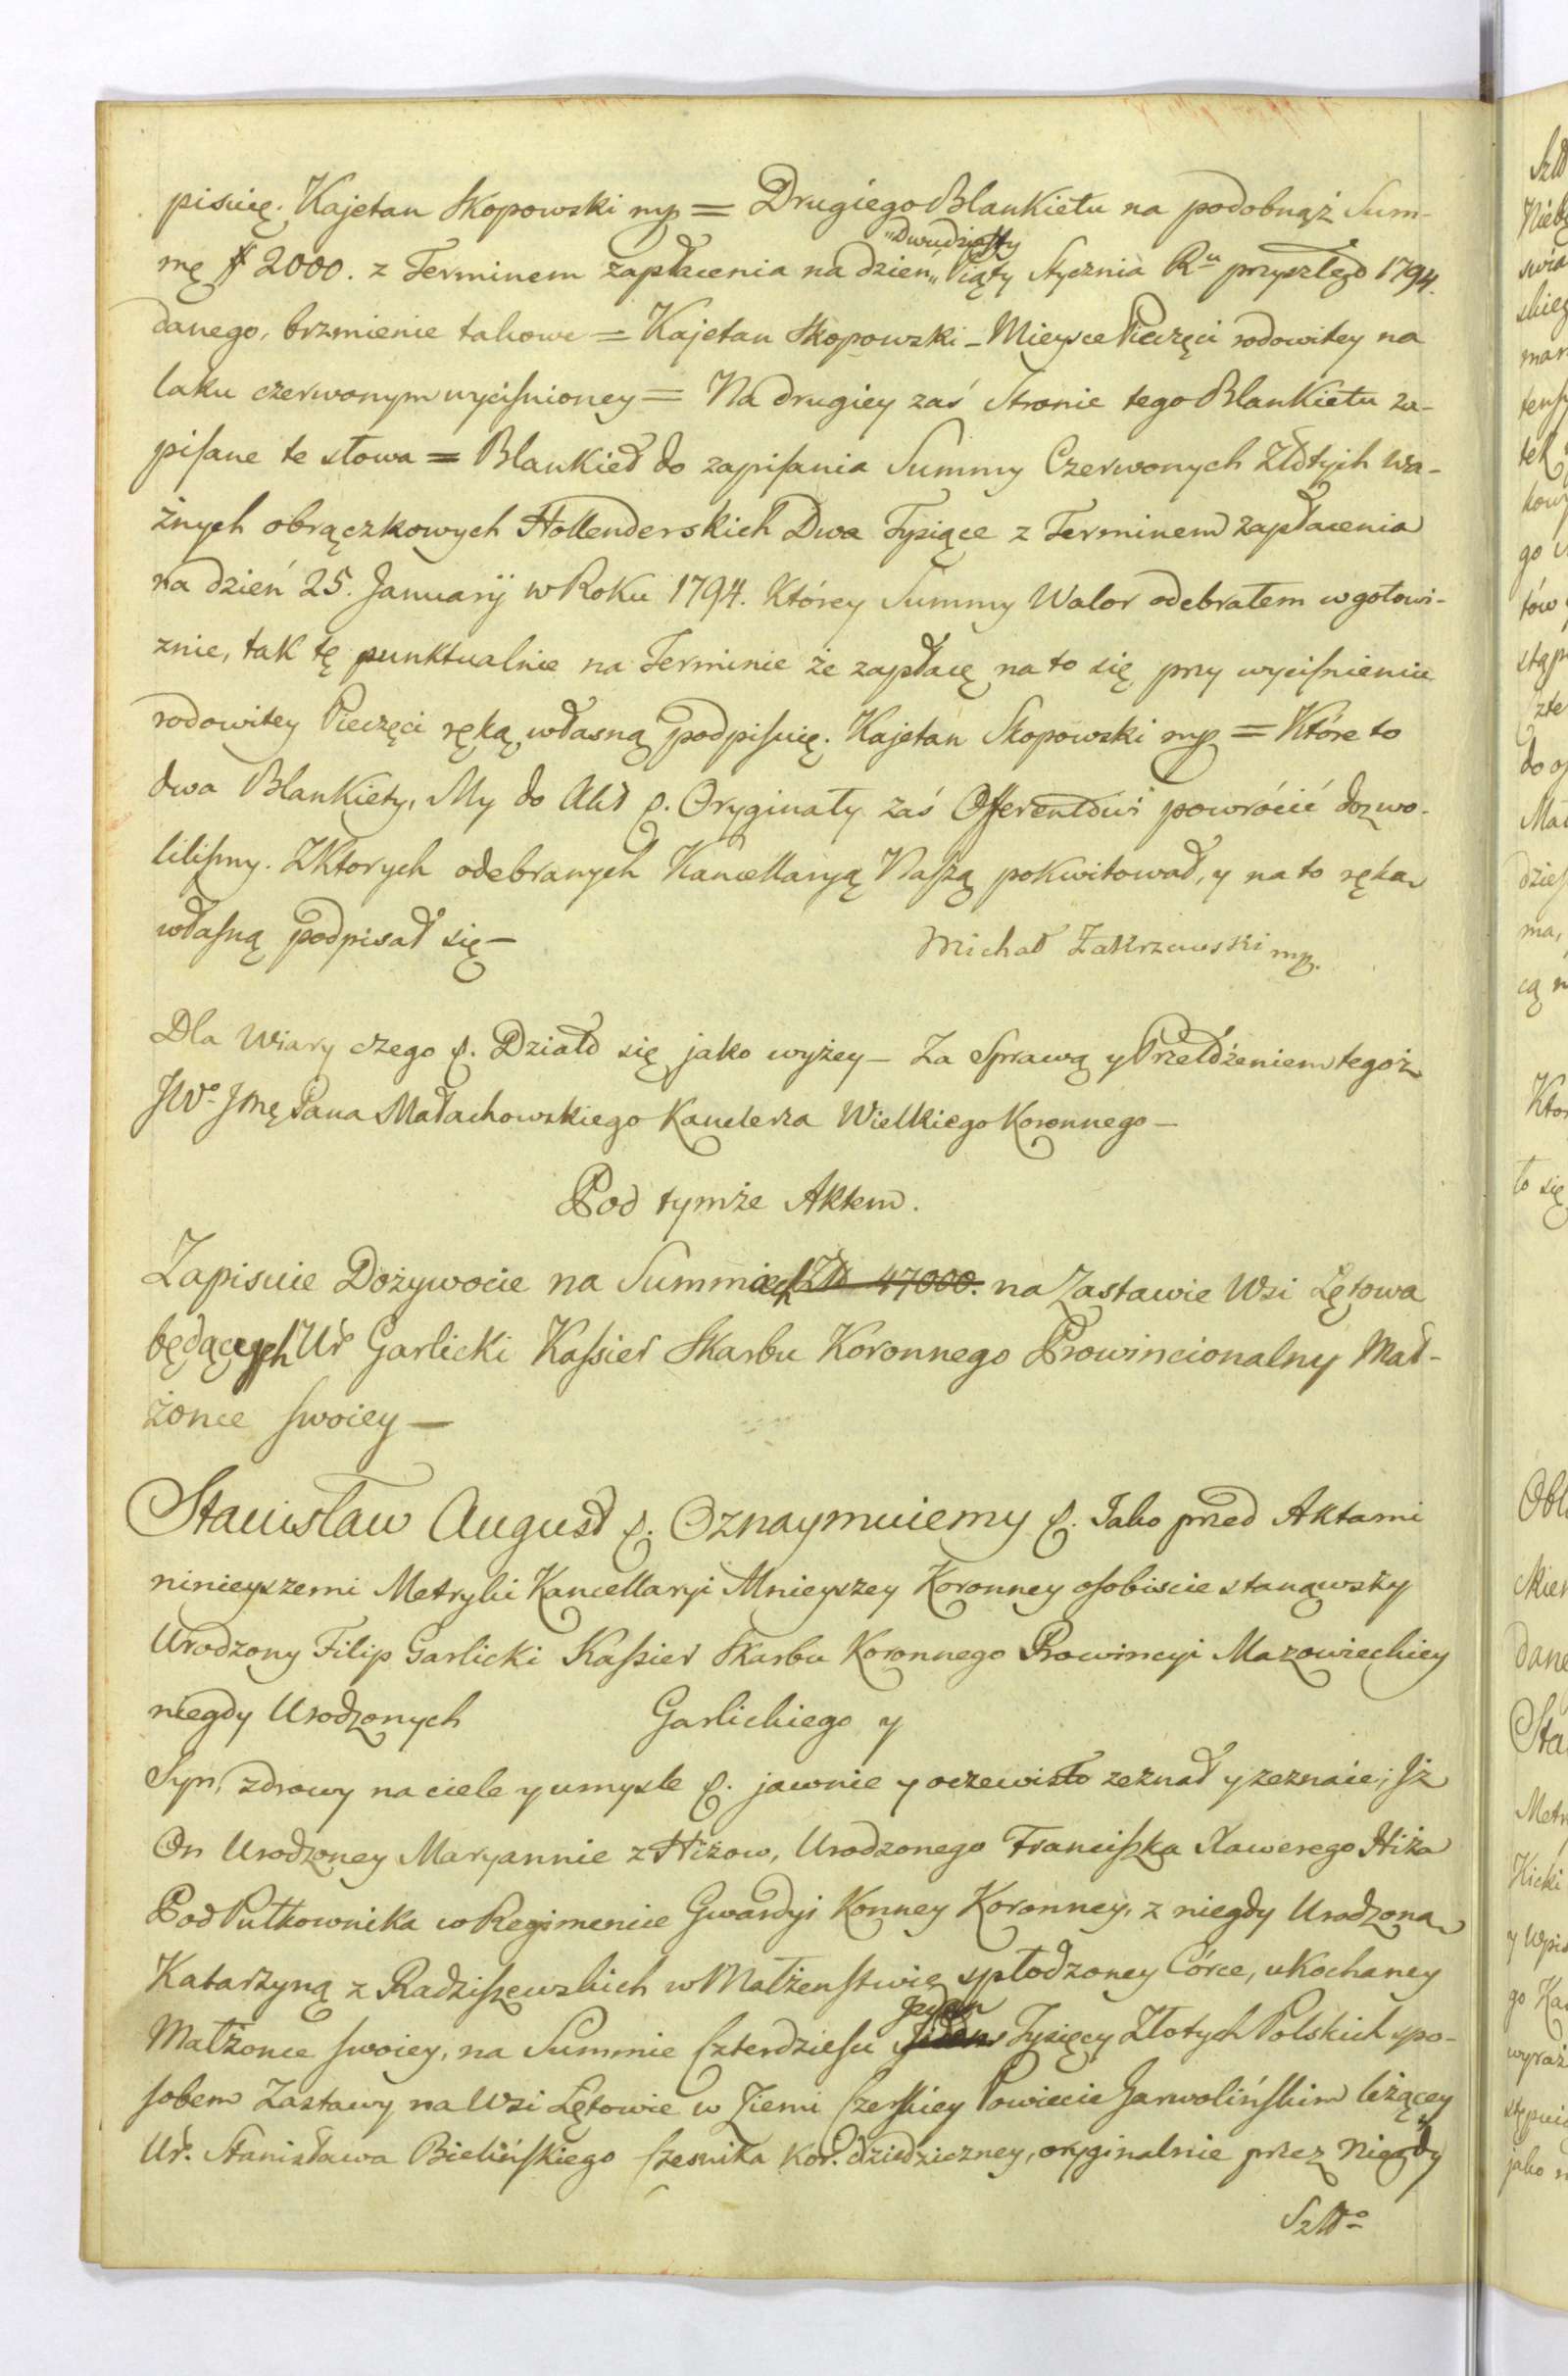 pisuię. Kajetan Skopowski mp = Drugiego Blankietu na podobnąż Sum-
mę # 2000. z Terminem zapłacenia na dzień „Dwudziesty„ Piąty Stycznia Ru przyszłego 1794.
danego, brzmienie takowe = Kajetan Skopowski - Mieysce Pieczęci rodowitey na
laku czerwonym wyciśnioney = Na drugiey zaś Stronie tego Blankietu za-
pisane te słowa = Blankiet do zapisania Summy Czerwonych Złotych wa-
żnych obrączkowych Hollenderskich Dwa Tysiące z Terminem zapłacenia
na dzień 25. Januarÿ w Roku 1794. Którey Summy Walor odebrałem w gotowi-
znie, tak tę punktualnie na Terminie że zapłacę na to się przy wyciśnieniu
rodowitey Pieczęci ręką własną podpisuię. Kajetan Skopowski mp = Które to
dwa Blankiety, My do Akt p. Oryginały zaś Offerentowi powrócić dozwo-
liliśmy. Z Ktorych odebranych Kancellaryą Naszą pokwitował, y na to ręką
własną podpisał się —
Michał Zakrzewski mp.
Dla Wiary czego p. Działo się jako wyżey — Za Sprawą y Przełożeniem tegoż
JWo Jmę Pana Małachowskiego Kanclerza Wielkiego Koronnego —
Pod tymże Aktem.
Zapisuie Dożywocie na Summach Zł 47000. na Zastawie Wsi Lętowa
będących Ur Garlicki Kassier Skarbu Koronnego Prowincionalny Mał-
żonce swoiey —
Stanisław August p. Oznaymuiemy p. Iako przed Aktami
ninieyszemi Metryki Kancellaryi Mnieyszey Koronney osobiscie stanąwszy
Urodzony Filip Garlicki Kassier Skarbu Koronnego Prowincyi Mazowieckiey
niegdy Urodzonych Garlickiego y
Syn, zdrowy na ciele y umysle p. jawnie y oczewisto zeznał y zeznaie; Jż
On Urodzoney Maryannie z Hiżow, Urodzonego Franciszka Xawerego Hiża
Pod Pułkownika w Regimencie Gwardyi Konney Koronney, z niegdy Urodzoną
Katarzyną z Radziszewskich w Małżenstwie spłodzoney Córce, ukochaney
Małżonce swoiey, na Summie Czterdziestu Jeden Tysięcy Złotych Polskich spo-
sobem Zastawy na Wsi Lętowie w Ziemi Czerskiey Powiecie Garwolińskim leżącey
Ur. Stanisława Bielińskiego Czesnika Kor. dziedziczney, oryginalnie przez Niegdy